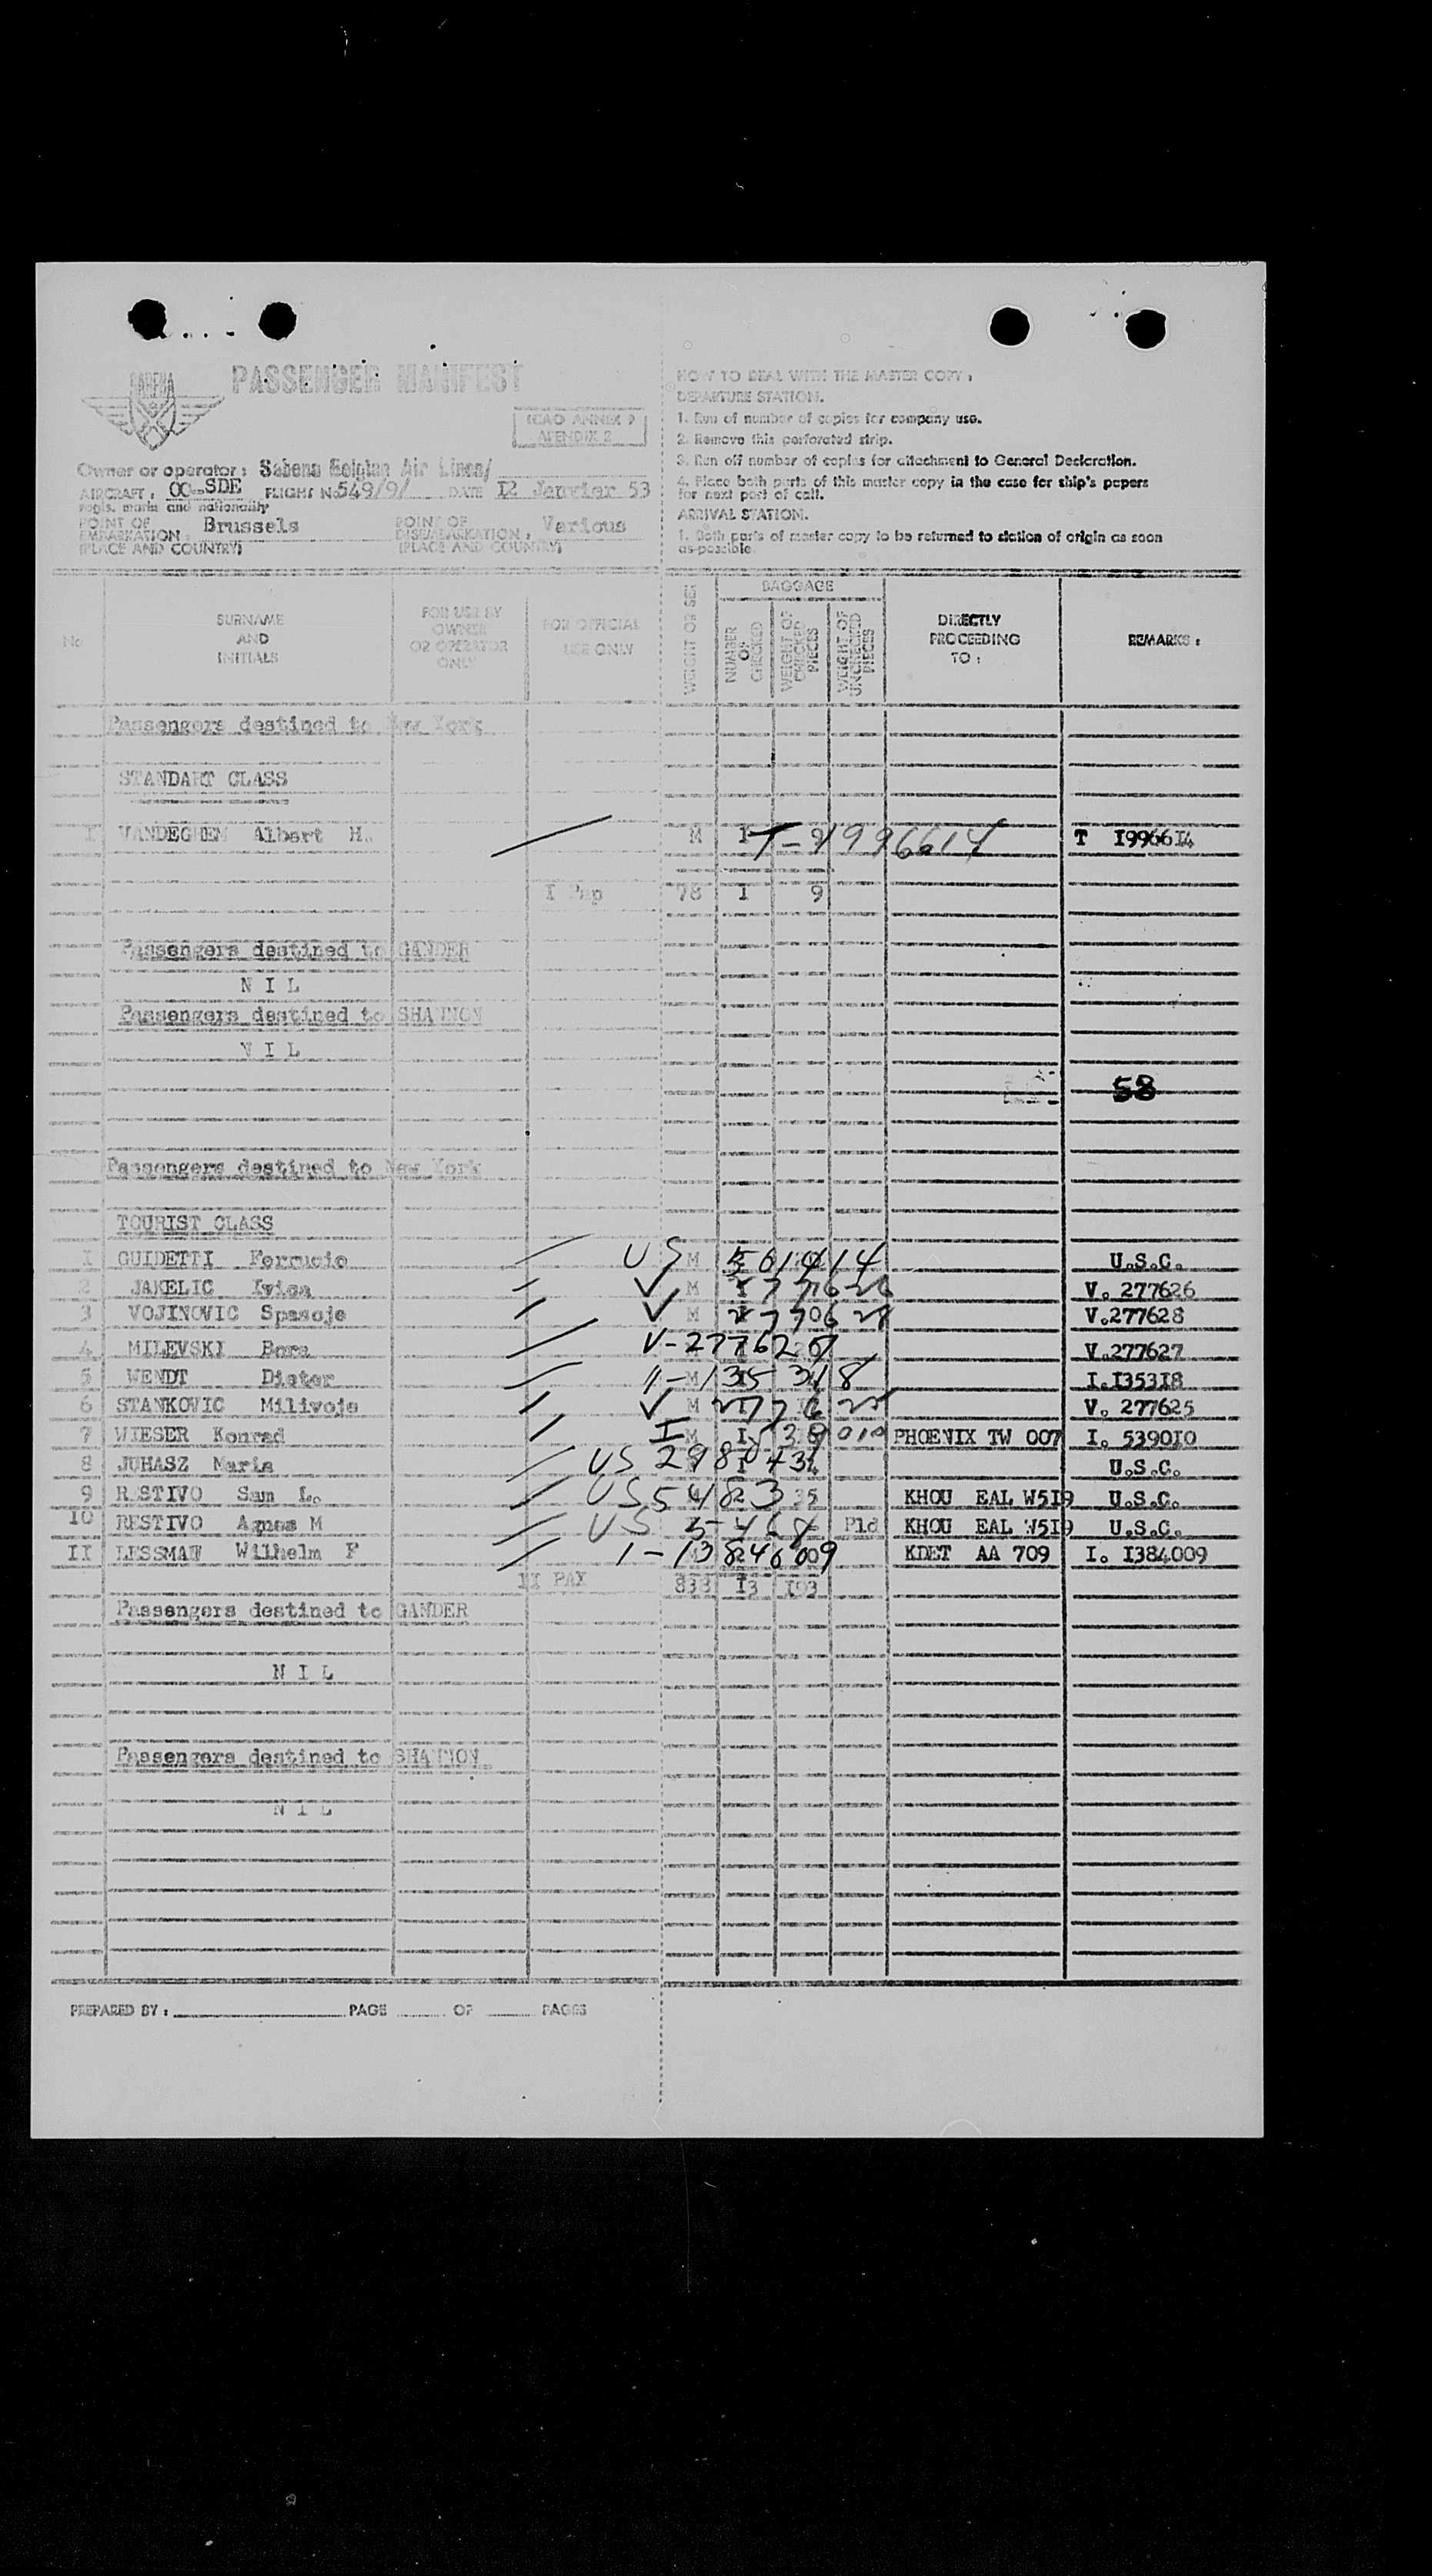 SABENA
PASSENGER MANIFEST
ICAO ANNEX 9
APENDIX 2
Owner or operator : Sabena Belgian Air Lines/
AIRCRAFT : OO-SDE FLIGHT No 549/9/ DATE I2 Janvier 53
regis. marks and nationality
POINT OF EMBARKATION : Brussels POINT OF DISEMBARKATION : Various
(PLACE AND COUNTRY) (PLACE AND COUNTRY)
HOW TO DEAL WITH THE MASTER COPY :
DEPARTURE STATION.
1. Run of number of copies for company use.
2. Remove this perforated strip.
3. Run off number of copies for attachment to General Declaration.
4. Place both parts of this master copy in the case for ship's papers
for next port of call.
ARRIVAL STATION.
1. Both parts of master copy to be returned to station of origin as soon
as possible.
No SURNAME AND INITIALS FOR USE BY OWNER OR OPERATOR ONLY FOR OFFICIAL USE ONLY WEIGHT OR SEX BAGGAGE NUMBER OF CHECKED WEIGHT OF CHECKED PIECES WEIGHT OF UNCHECKED PIECES DIRECTLY PROCEEDING TO : REMARKS :
Passengers destined to New York
STANDART CLASS
I VANDEGHEN Albert H. M I T-1996614 T I9966I4
I Pap 78 I 9
Passengers destined to GANDER
N I L
Passengers destined to SHANNON
N I L
58
Passengers destined to New York
TOURIST CLASS
1 GUIDETTI Ferrucio US M U.S.C.
2 JAKELIC Ivica V M V. 277626
3 VOJINOVIC Spasoje V M V.277628
4 MILEVSKI Bora V-277627 V.277627
5 WENDT Dieter M 135318 I.I35318
6 STANKOVIC Milivoje V M V. 277625
7 WIESER Konrad I M PHOENIX TW 007 I. 5390I0
8 JUHASZ Maria US U.S.C.
9 RESTIVO Sam L. US KHOU EAL W5I9 U.S.C.
10 RESTIVO Agnes M US Pld KHOU EAL W5I9 U.S.C.
II LESSMAN Wilhelm F KDET AA 709 I. I384009
II PAX 838 I3 I93
Passengers destined to GANDER
N I L
Passengers destined to SHANNON
N I L
PREPARED BY : PAGE OF PAGES